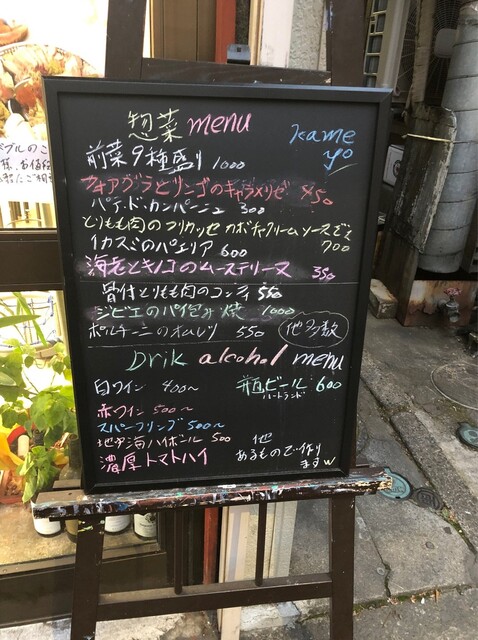 惣菜 menu
Kame
yo
前菜9種盛り 1000
フォアグラとリンゴのキャラメリゼ 850
パテ・ド・カンパーニュ 300
とりもも肉のフリカッセ カボチャクリームソースごえ
700
イカスミのパエリア 600
海老とキノコのムーステリーヌ 350
骨付とりもも肉のコンディ 550
ジビエのパイ包み焼 1000
ポルチーニのオムレツ 550
他多数
Drik alcohol menu
白ワイン 400〜
瓶ビール 600
ハートランド
赤ワイン 500〜
スパークリング 500〜
地中海ハイボール 500
濃厚トマトハイ
他
あるもので作り
ますw